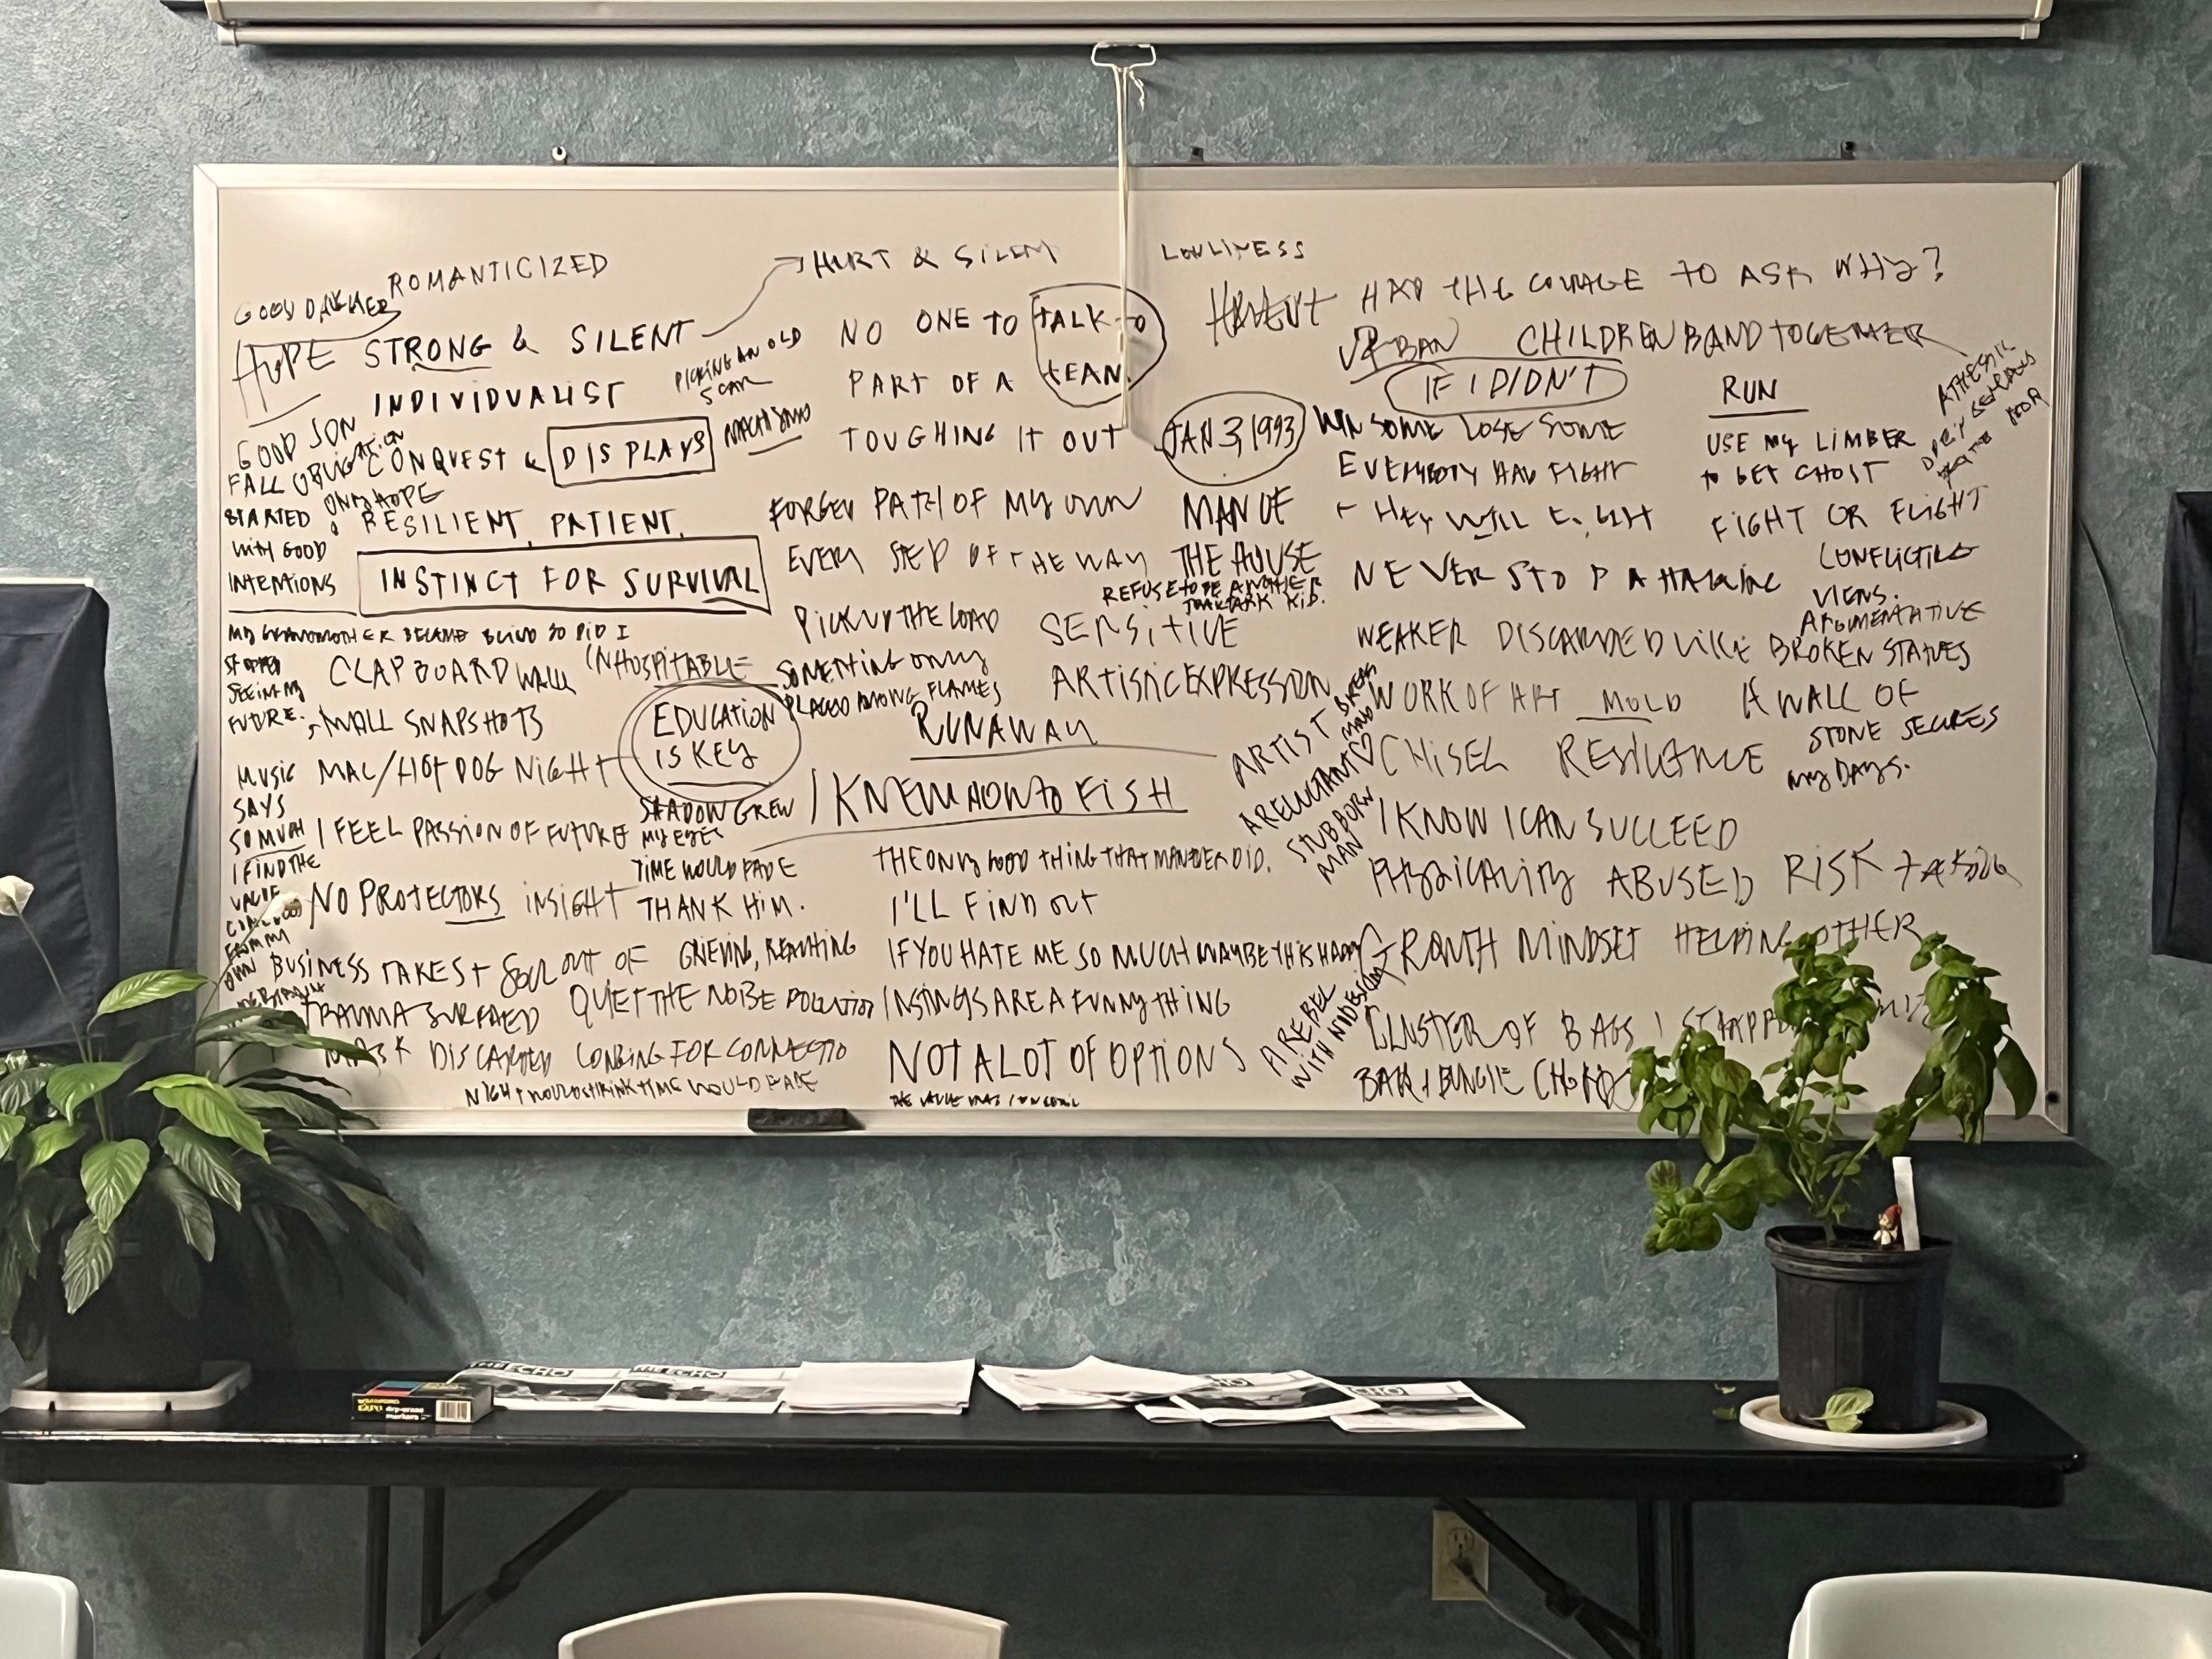 ROMANTICIZED
HURT & SILENT
LONLINESS
GOOD DAUGHTER
HOPE STRONG & SILENT
NO ONE TO TALK TO
HAVENT HAD THE COURAGE TO ASK WHY?
URBAN CHILDREN BAND TOGETHER
INDIVIDUALIST
PICKING AN OLD
SCAR
PART OF A TEAM
IF I DIDN'T
RUN
GOOD SON
FALL OBLIGATION
CONQUEST & DISPLAYS
TOUGHING IT OUT
JAN 3, 1993
WIN SOME LOSE SOME
USE MY LIMBER
TO GET GHOST
EVERYBODY HAD FIGHT
ONLY HOPE
STARTED
WITH GOOD
INTENTIONS
RESILIENT, PATIENT,
INSTINCT FOR SURVIVAL
FORGED PATH OF MY OWN
EVERY STEP OF THE WAY
MAN OF
THE HOUSE
REFUSE TO BE ANOTHER
KID.
THEY WILL
FIGHT OR FLIGHT
NEVER STOP
CONFLICTING
VIEWS.
ARGUMENTATIVE
MY GRANDMOTHER BECAME BLIND SO DID I
STOPPED
SEEING MY
FUTURE.
CLAPBOARD WALL INHOSPITABLE
PICK UP THE LOAD
SOMETHING ONLY
PLACED AMONG FLAMES
SENSITIVE
ARTISTIC EXPRESSION
WEAKER DISCARDED LIKE BROKEN STATUES
SMALL SNAPSHOTS
EDUCATION
IS KEY
RUNAWAY
WORK OF ART MOLD
A WALL OF
STONE SECURES
MY DAYS.
CHISEL RESILIANCE
MUSIC
SAYS
SO MUCH
I FIND THE
VALUE
FROM MY
OWN
MAC/HOT DOG NIGHT
SHADOW GREW
MY EYES
I KNEW HOW TO FISH
ARTIST
A RELUCTANT
STUBBORN
MAN
I KNOW I CAN SUCCEED
I FEEL PASSION OF FUTURE
TIME WOULD FADE
THANK HIM.
THE ONLY GOOD THING THAT MAN EVER DID.
PHYSICALITY ABUSED RISK TAKING
NO PROTECTORS INSIGHT
I'LL FIND OUT
BUSINESS TAKES SOUL OUT OF GRIEVING, REACHING
IF YOU HATE ME SO MUCH MAYBE THIS HAPPY
GROWTH MINDSET HELPING OTHER
TRAUMA SURFACED QUIET THE NOISE POLLUTION
INSTINCTS ARE A FUNNY THING
A REBEL
WITH
CLUSTER OF BAGS I
MASK DISCARDED LONGING FOR CONNECTIO
NOT A LOT OF OPTIONS
BAR & BUNGIE CHORDS
NIGHT WOULD THINK TIME WOULD FADE
THE VALUE WAS
THE ECHO
THE ECHO
ECHO
ECHO
EXPO
dry-erase
markers